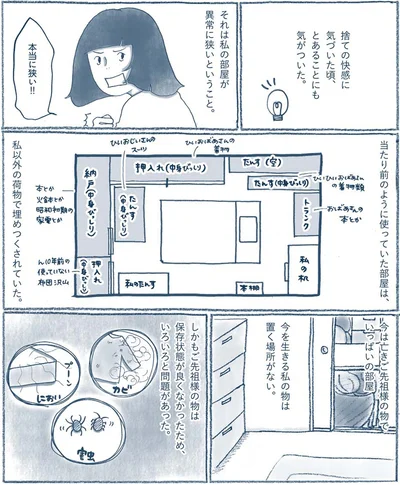 捨ての快感に
気づいた頃、
とあることにも
気がついた。
それは私の部屋が
異常に狭いということ。
本当に狭い!!
当たり前のように使っていた部屋は、
ひいおばあさんの
着物
ひいおじいさんの
スーツ
たんす(空)
押入れ(中身びっしり)
納戸(中身びっしり)
たんす(中身びっしり)
たんす(中身びっしり)
ひいひいおばあさん
の着物類
トランク
おじいさんの
本とか
私の机
本棚
私のたんす
押入れ
(中身びっしり)
本とか
火鉢とか
昭和初期の
家電とか
ん10年前の
使っていない
布団沢山
私以外の荷物で埋めつくされていた。
今は亡きご先祖様の物で
いっぱいの部屋
今を生きる私の物は
置く場所がない。
しかもご先祖様の物は
保存状態が良くなかったため、
いろいろと問題があった。
プーン
におい
カビ
害虫